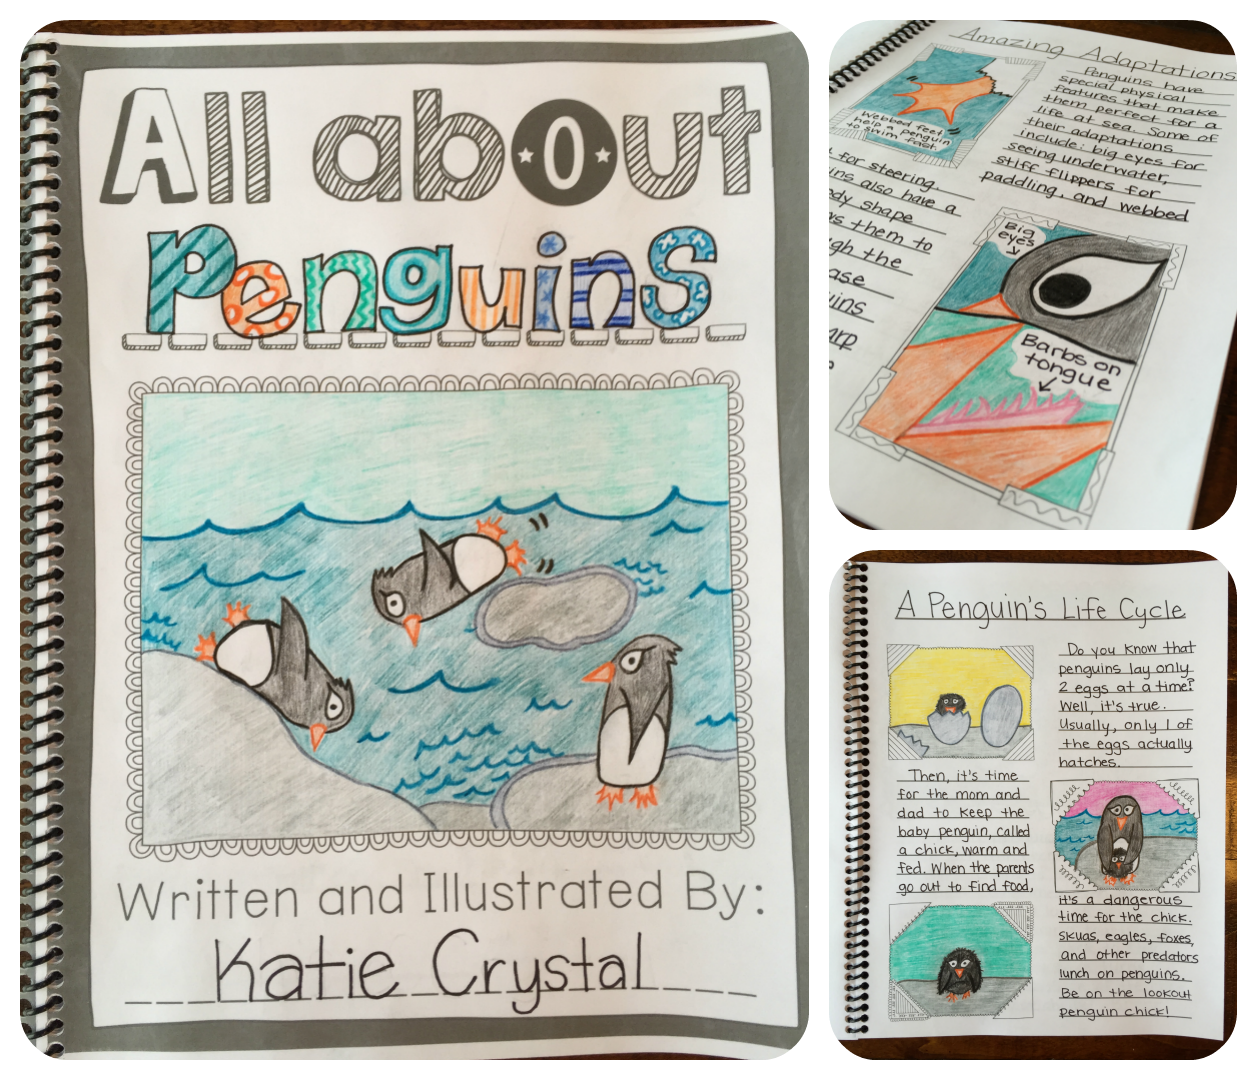 All about
Penguins
Written and Illustrated By:
Katie Crystal
Amazing Adaptations
Webbed feet
help a penguin
to swim fast
Penguins have
special physical
features that make
them perfect for a
life at sea. Some of
their adaptations
include: big eyes for
seeing underwater,
stiff flippers for
paddling, and webbed
for steering.
also have a
shape
them to
the
Big
eyes
Barbs on
tongue
A Penguin's Life Cycle
Do you know that
penguins lay only
2 eggs at a time?
Well, it's true.
Usually, only 1 of
the eggs actually
hatches.
Then, it's time
for the mom and
dad to keep the
baby penguin, called
a chick, warm and
fed. When the parents
go out to find food,
it's a dangerous
time for the chick.
Skuas, eagles, foxes,
and other predators
lunch on penguins.
Be on the lookout
penguin chick!